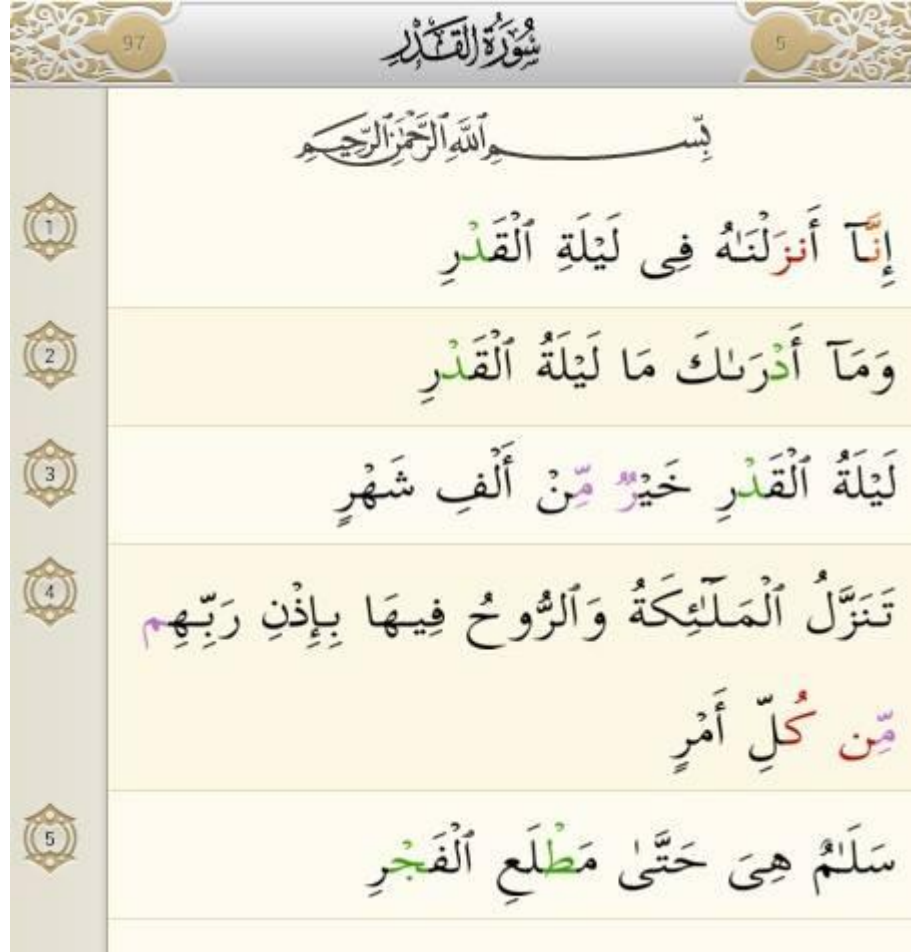 97 سُورَةُ القَدْرِ 5
بِسْمِ ٱللَّهِ ٱلرَّحْمَٰنِ ٱلرَّحِيمِ
1 إِنَّآ أَنزَلْنَـٰهُ فِى لَيْلَةِ ٱلْقَدْرِ
2 وَمَآ أَدْرَىٰكَ مَا لَيْلَةُ ٱلْقَدْرِ
3 لَيْلَةُ ٱلْقَدْرِ خَيْرٌ مِّنْ أَلْفِ شَهْرٍ
4 تَنَزَّلُ ٱلْمَلَـٰٓئِكَةُ وَٱلرُّوحُ فِيهَا بِإِذْنِ رَبِّهِم
مِّن كُلِّ أَمْرٍ
5 سَلَـٰمٌ هِىَ حَتَّىٰ مَطْلَعِ ٱلْفَجْرِ